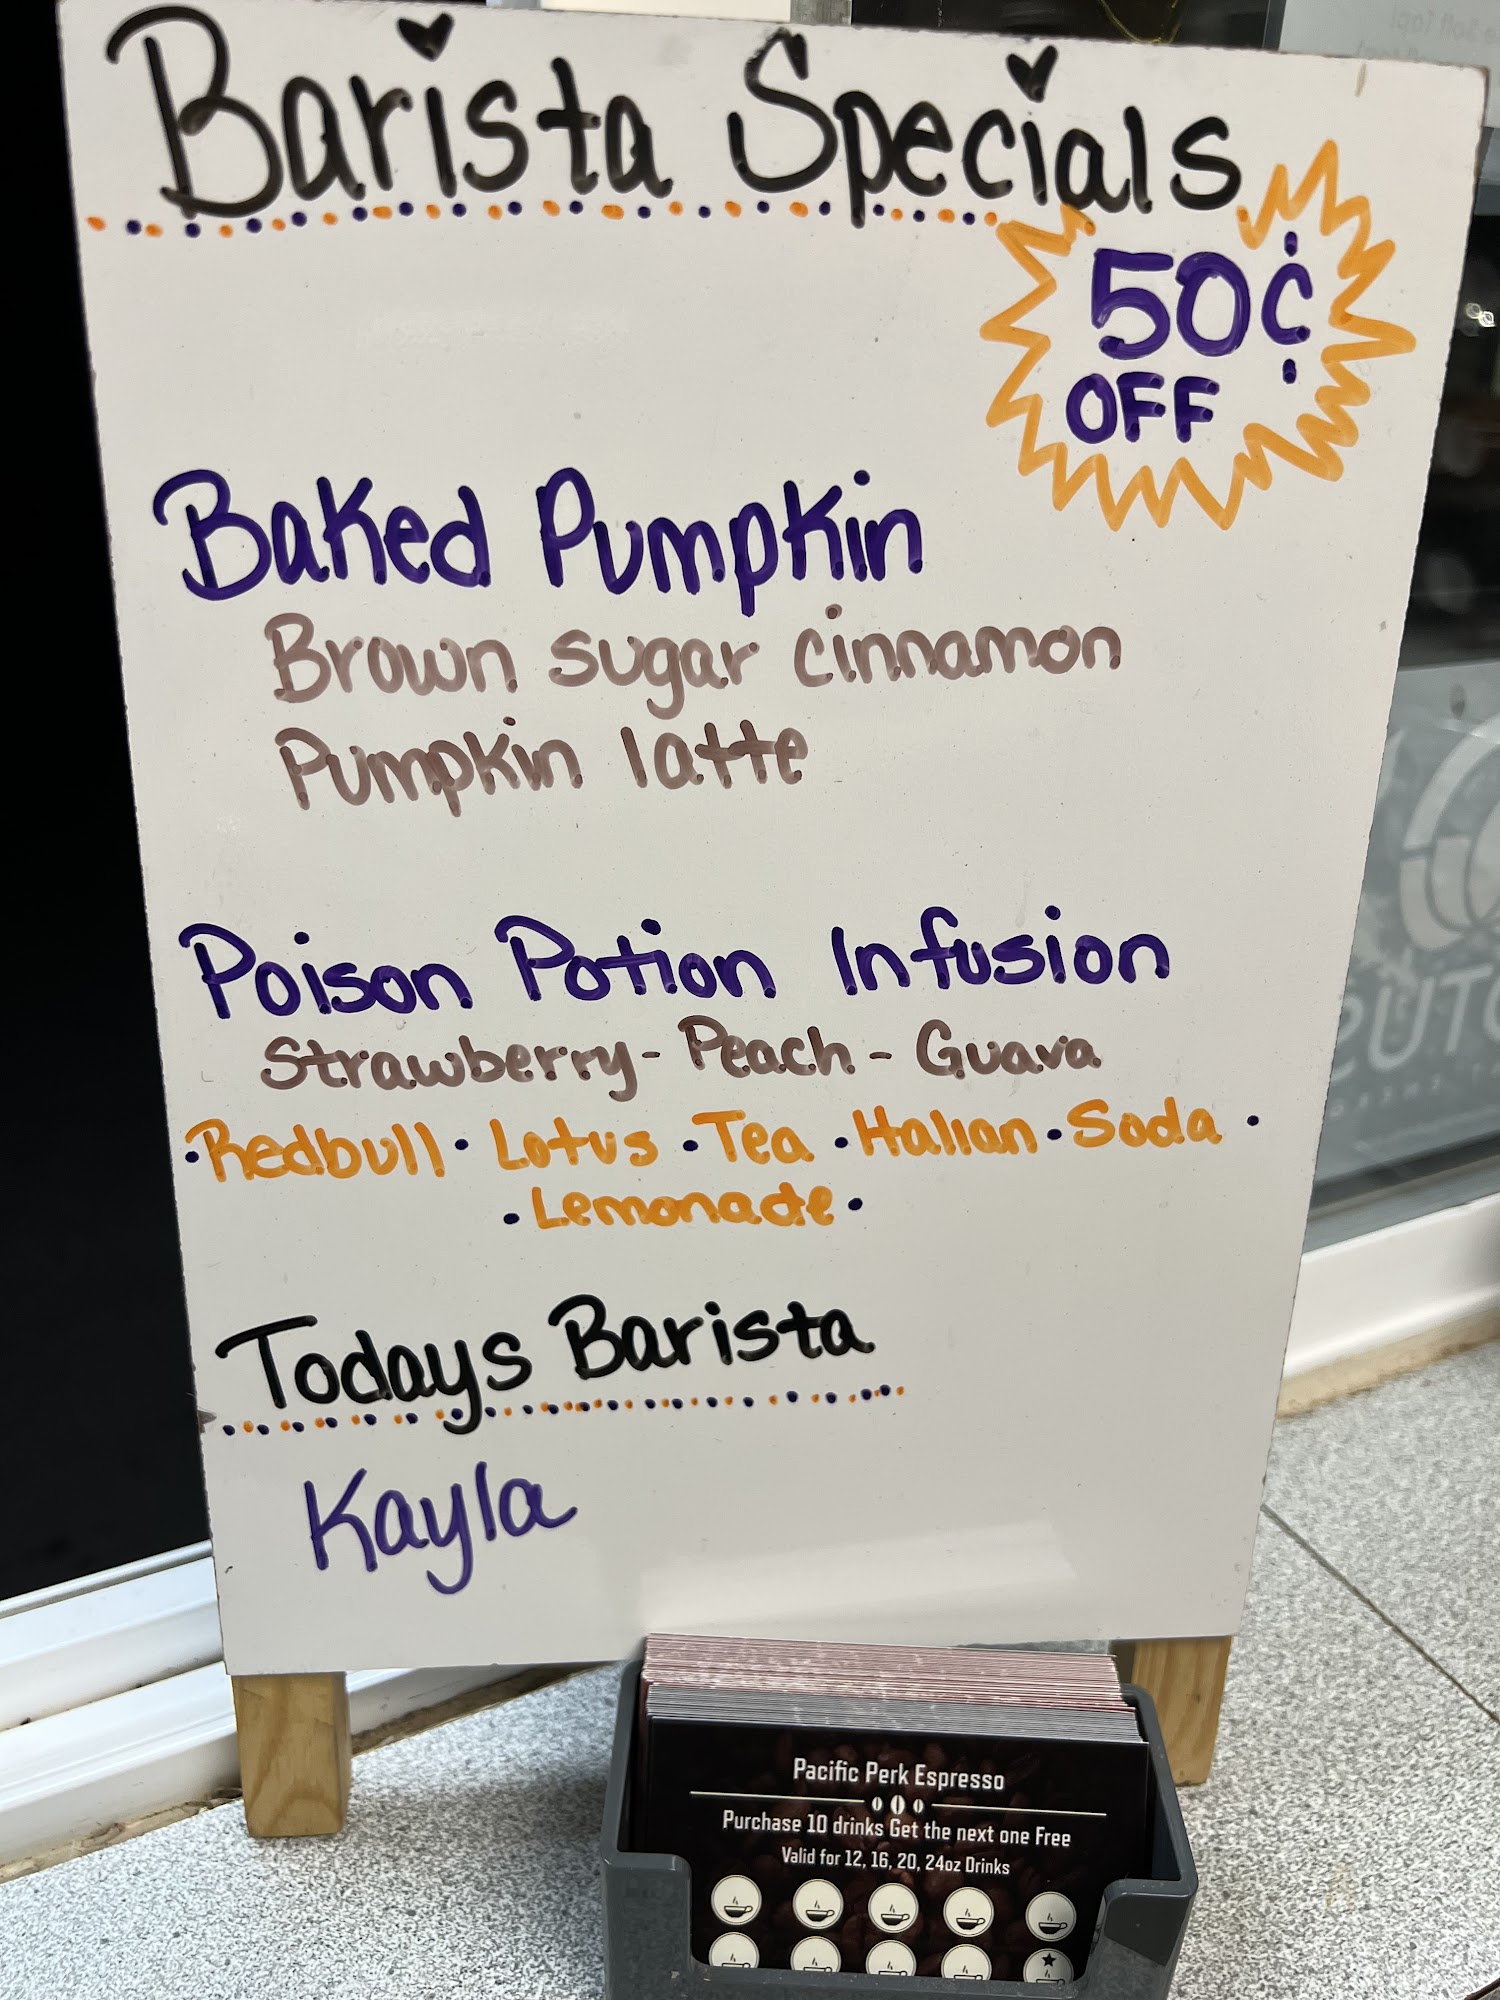 Barista Specials
50¢
OFF
Baked Pumpkin
Brown sugar cinnamon
Pumpkin latte
Poison Potion Infusion
Strawberry - Peach - Guava
• Redbull • Lotus • Tea • Italian • Soda •
• Lemonade •
Todays Barista
Kayla
Pacific Perk Espresso
Purchase 10 drinks Get the next one Free
Valid for 12, 16, 20, 24oz Drinks